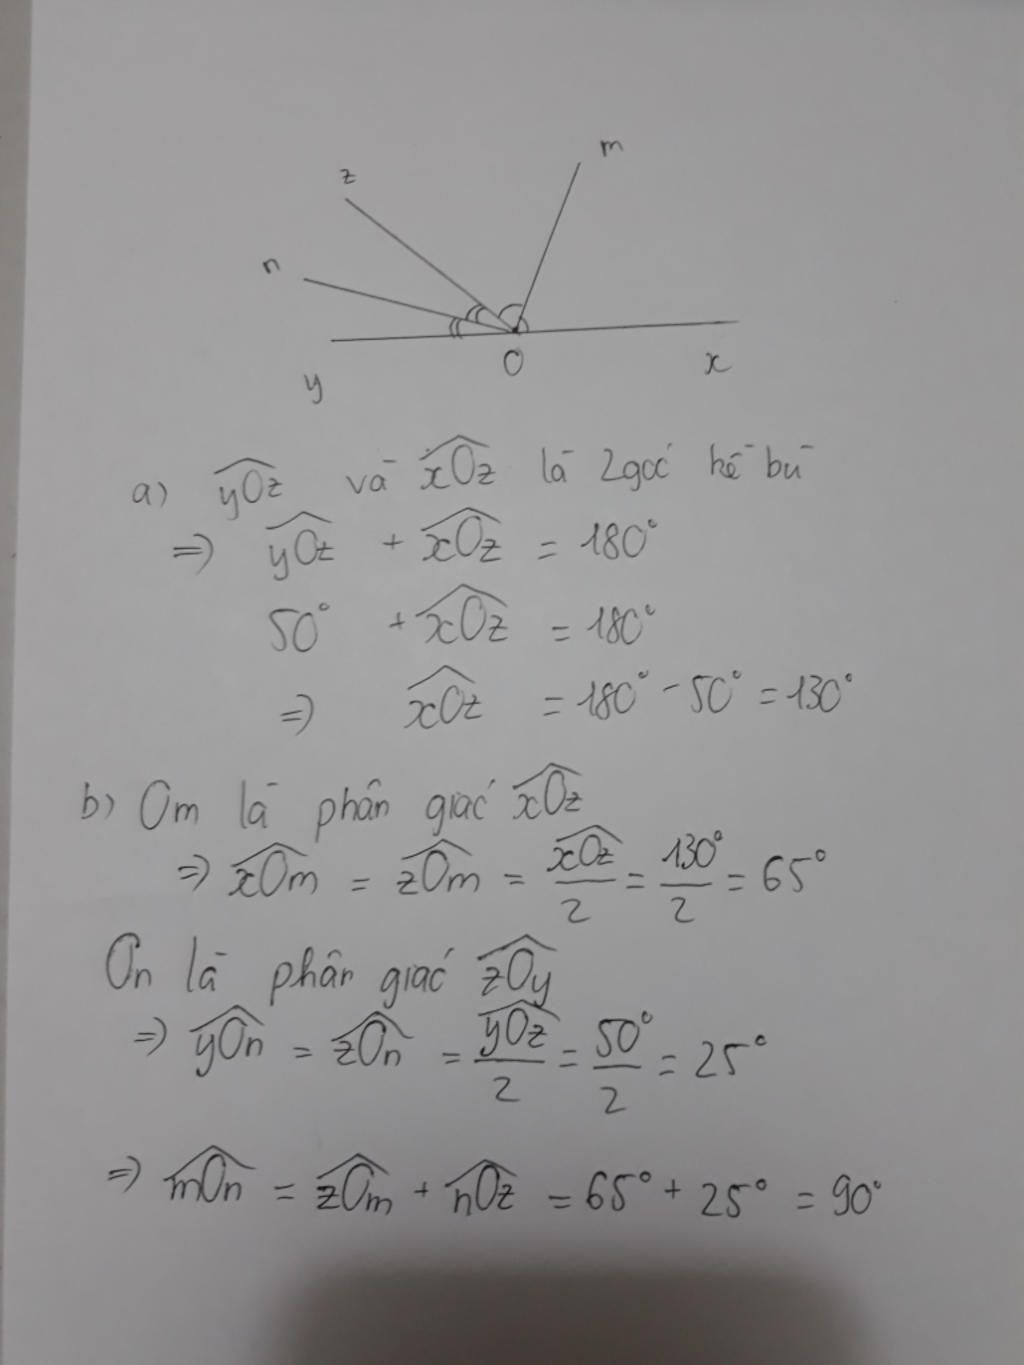 z
m
n
O
x
y
a) $\widehat{yOz}$ và $\widehat{xOz}$ là 2 góc kề bù
⇒ $\widehat{yOz}$ + $\widehat{xOz}$ = 180°
50° + $\widehat{xOz}$ = 180°
⇒ $\widehat{xOz}$ = 180° - 50° = 130°
b) Om là phân giác $\widehat{xOz}$
⇒ $\widehat{xOm}$ = $\widehat{zOm}$ = $\frac{\widehat{xOz}}{2}$ = $\frac{130°}{2}$ = 65°
On là phân giác $\widehat{zOy}$
⇒ $\widehat{yOn}$ = $\widehat{zOn}$ = $\frac{\widehat{yOz}}{2}$ = $\frac{50°}{2}$ = 25°
⇒ $\widehat{mOn}$ = $\widehat{zOm}$ + $\widehat{nOz}$ = 65° + 25° = 90°